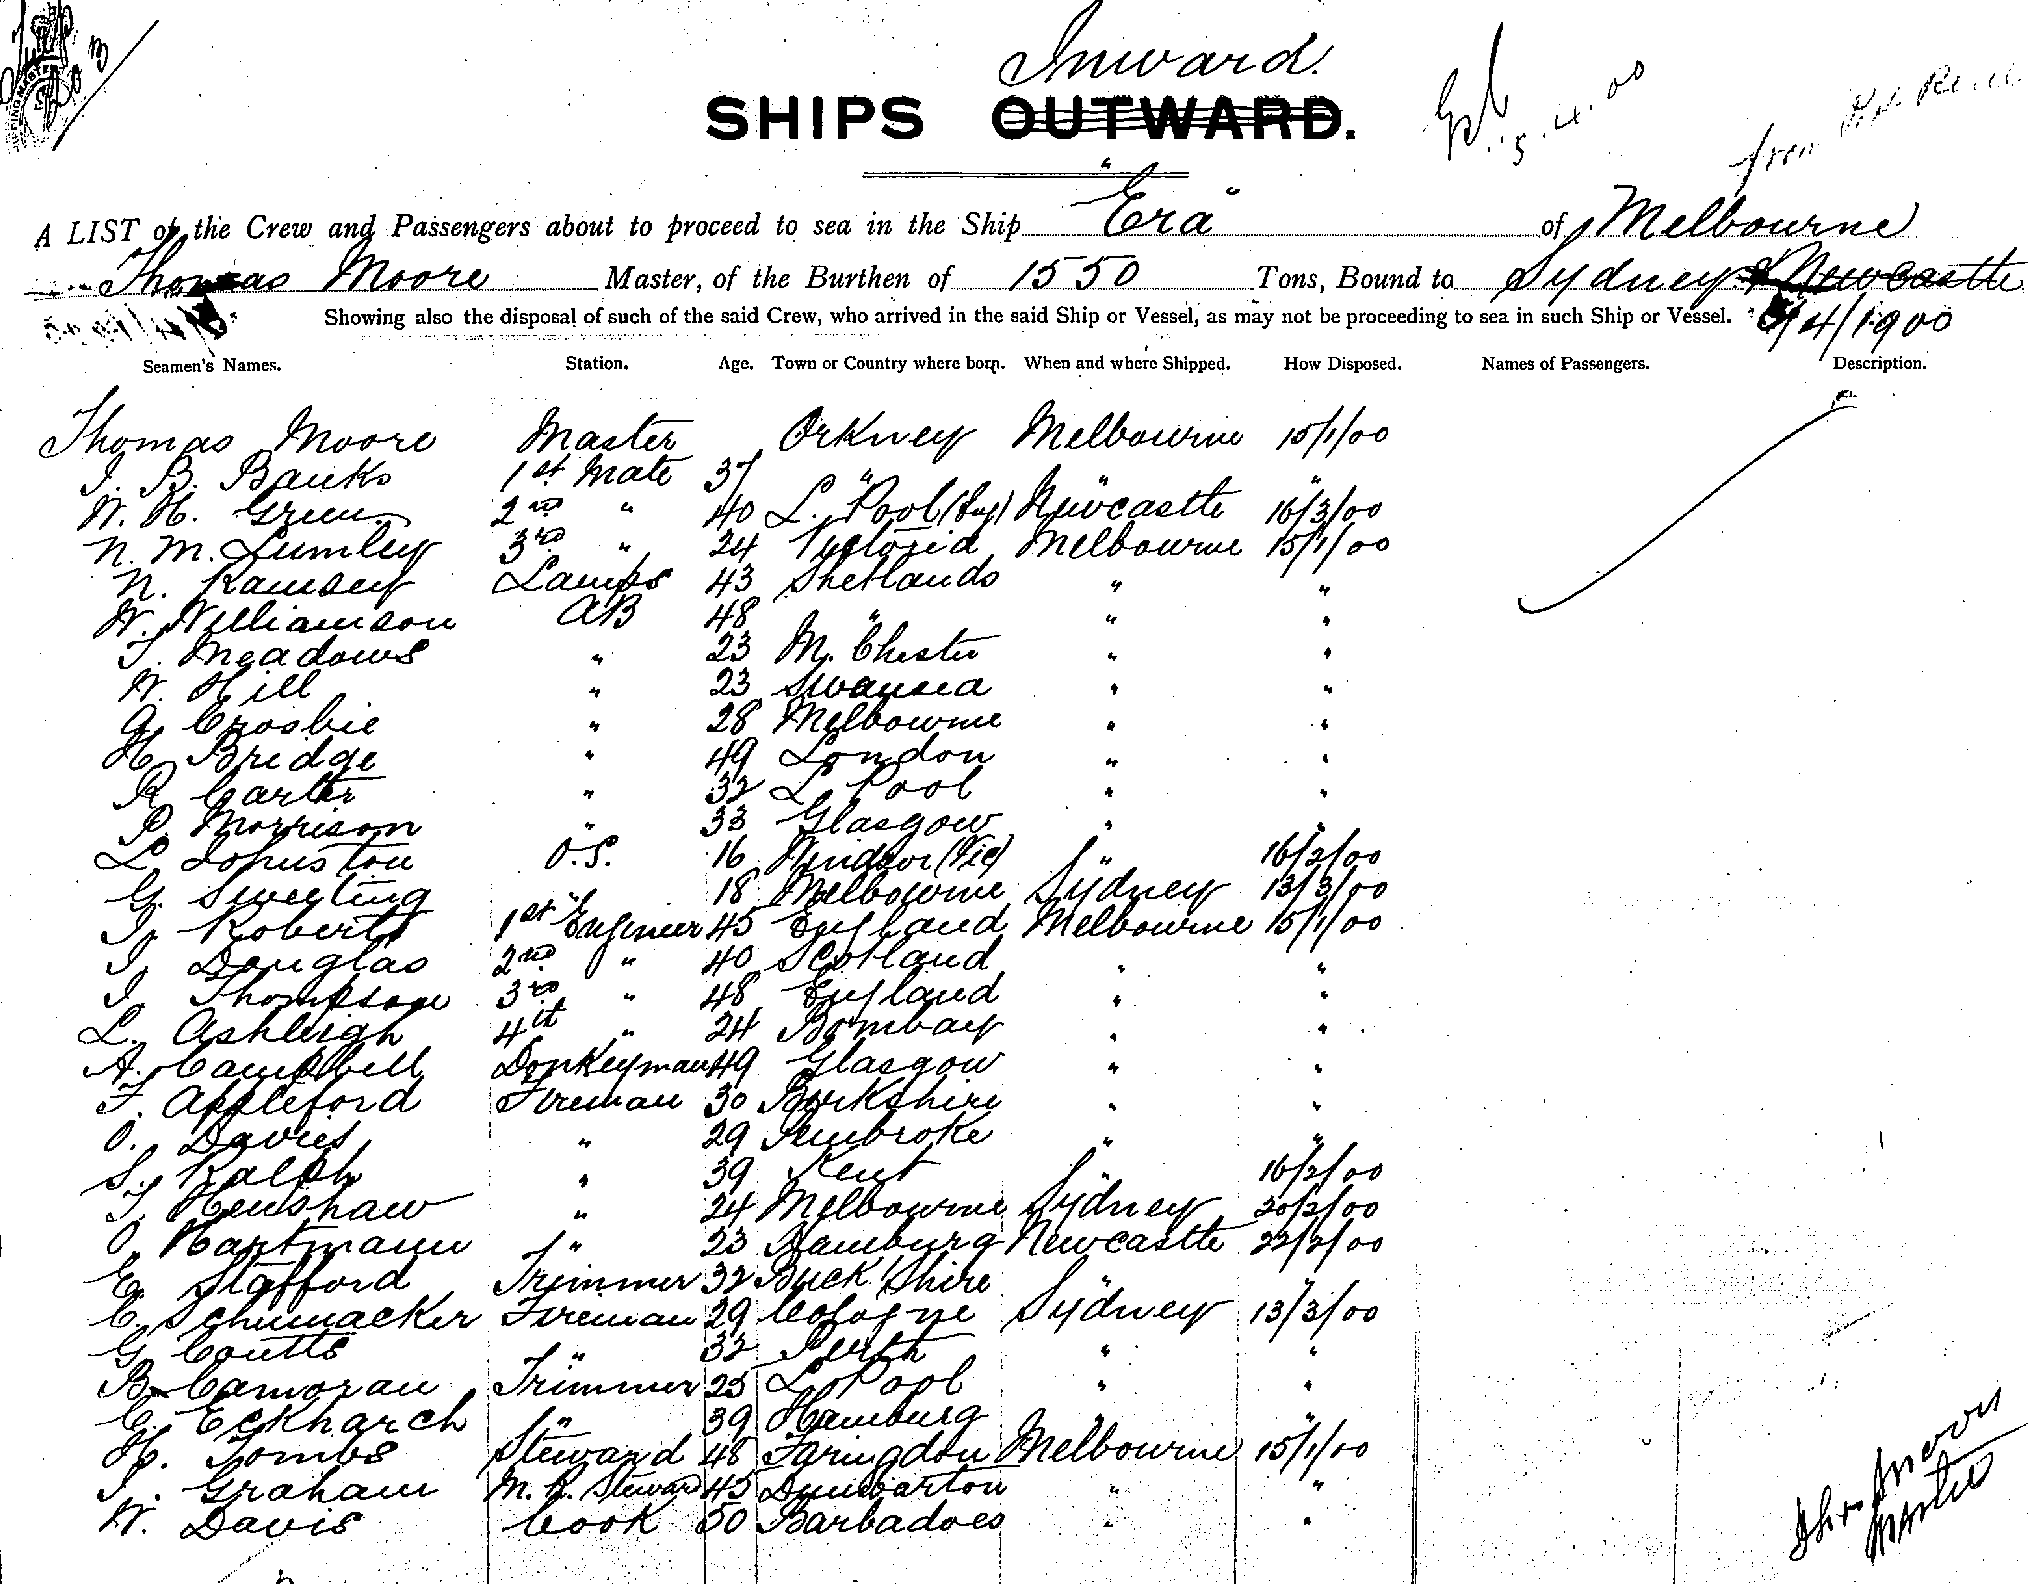 Inward.
SHIPS OUTWARD.
5.4.00
from
A LIST of the Crew and Passengers about to proceed to sea in the Ship "Era" of Melbourne
Thomas Moore Master, of the Burthen of 1550 Tons, Bound to Sydney & Newcastle
Showing also the disposal of such of the said Crew, who arrived in the said Ship or Vessel, as may not be proceeding to sea in such Ship or Vessel. 5/4/1900
Seamen's Names. Station. Age. Town or Country where born. When and where Shipped. How Disposed. Names of Passengers. Description.
Thomas Moore Master Orkney Melbourne 15/1/00
J. B. Banks 1st Mate 37 " " "
W. H. Green 2nd " 40 L. Pool (Eng) Newcastle 16/3/00
N. M. Lumley 3rd " 24 Victoria Melbourne 15/1/00
N. Ramsey Lamps 43 Shetlands " "
W. Williamson AB 48 " " "
T. Meadows " 23 M. Chester " "
W. Hill " 23 Swansea " "
G. Crosbie " 28 Melbourne " "
H. Bridge " 49 London " "
R. Carter " 32 L Pool " "
P. Morrison " 33 Glasgow " "
L. Johnston O.S. 16 Windsor (Vic) " 16/2/00
G. Sweeting " 18 Melbourne Sydney 13/3/00
J. Roberts 1st Engineer 45 England Melbourne 15/1/00
J. Douglas 2nd " 40 Scotland " "
J. Thompson 3rd " 48 England " "
L. Ashleigh 4th " 24 Bombay " "
A. Campbell Donkeyman 49 Glasgow " "
F. Appleford Fireman 30 Berkshire " "
O. Davies " 29 Pembroke " "
S. Ralph " 39 Kent " 16/2/00
T. Henshaw " 24 Melbourne Sydney 20/2/00
O. Hartmann " 23 Hamburg Newcastle 22/2/00
E. Stafford Trimmer 32 Buck'shire " "
C. Schumacker Fireman 29 Cologne Sydney 13/3/00
G. Coutts " 32 Perth " "
B. Camoran Trimmer 25 L. Pool " "
C. Eckharch " 39 Hamburg " "
H. Tombs Steward 48 Faringdon Melbourne 15/1/00
J. Graham M. R. Steward 45 Dumbarton " "
W. Davis Cook 50 Barbadoes " "
Thos Moore
Master